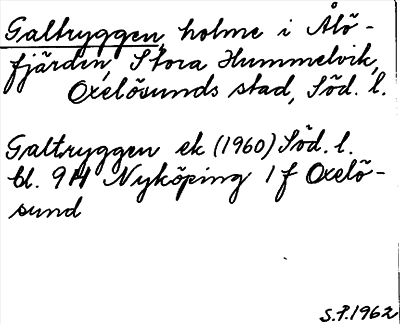 Galtryggen, holme i Ålö-
fjärden, Stora Hummelvik,
Oxelösunds stad, Söd. l.
Galtryggen ek (1960) Söd. l.
bl. 9H Nyköping 1f Oxelö-
sund
S.P.1962